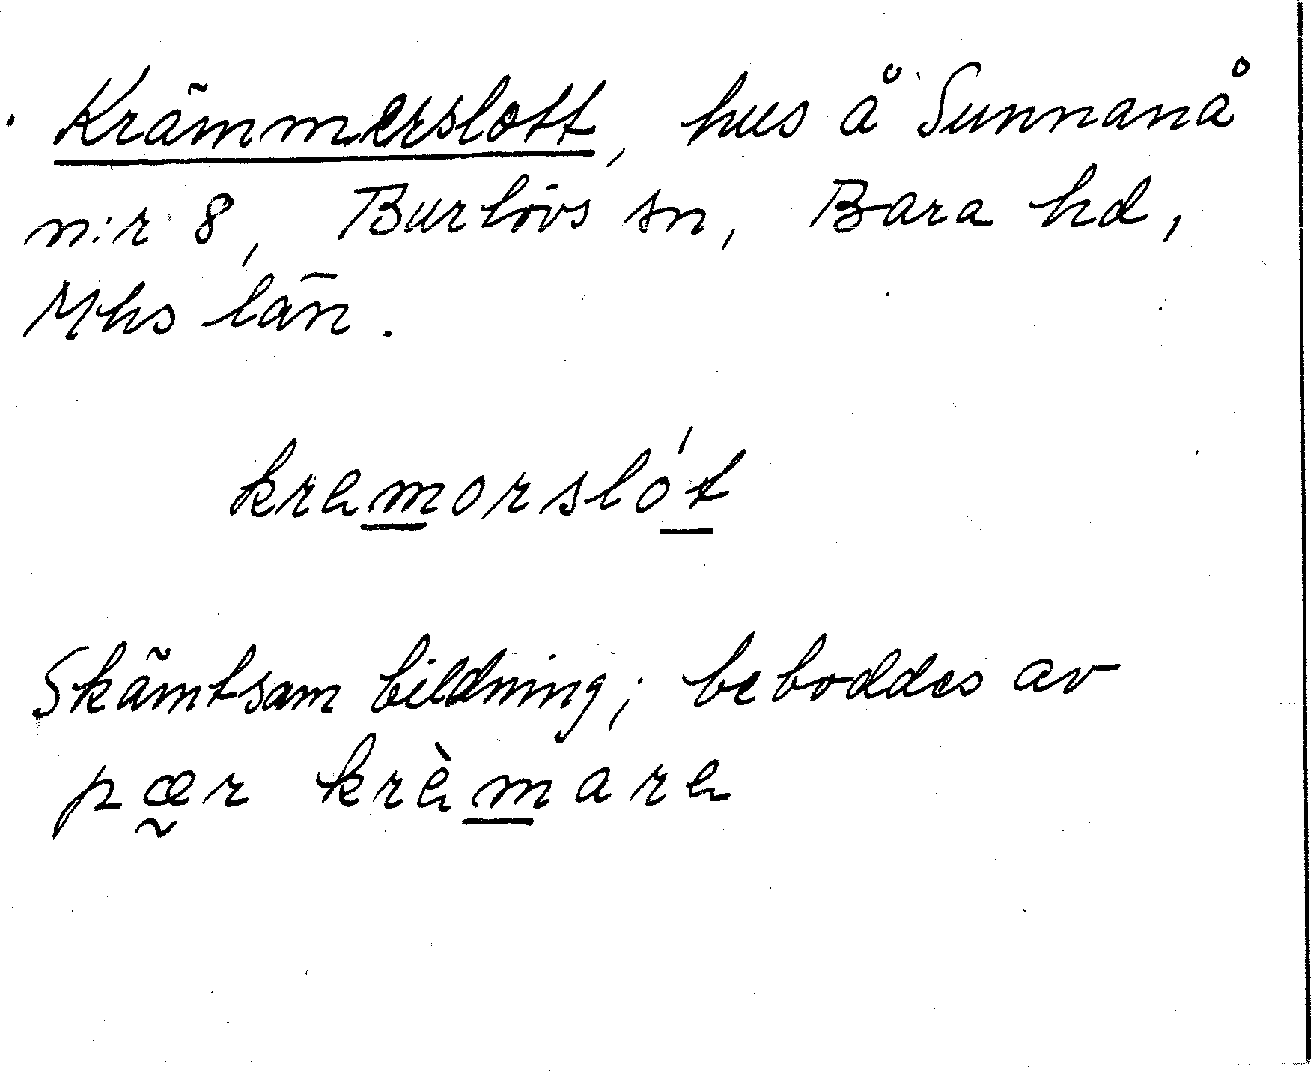 Krämmerslott, hus å Sunnanå
n:r 8, Burlövs sn, Bara hd,
Mhs län.
kramorslót
Skämtsam bildning; beboddes av
pær kràmara